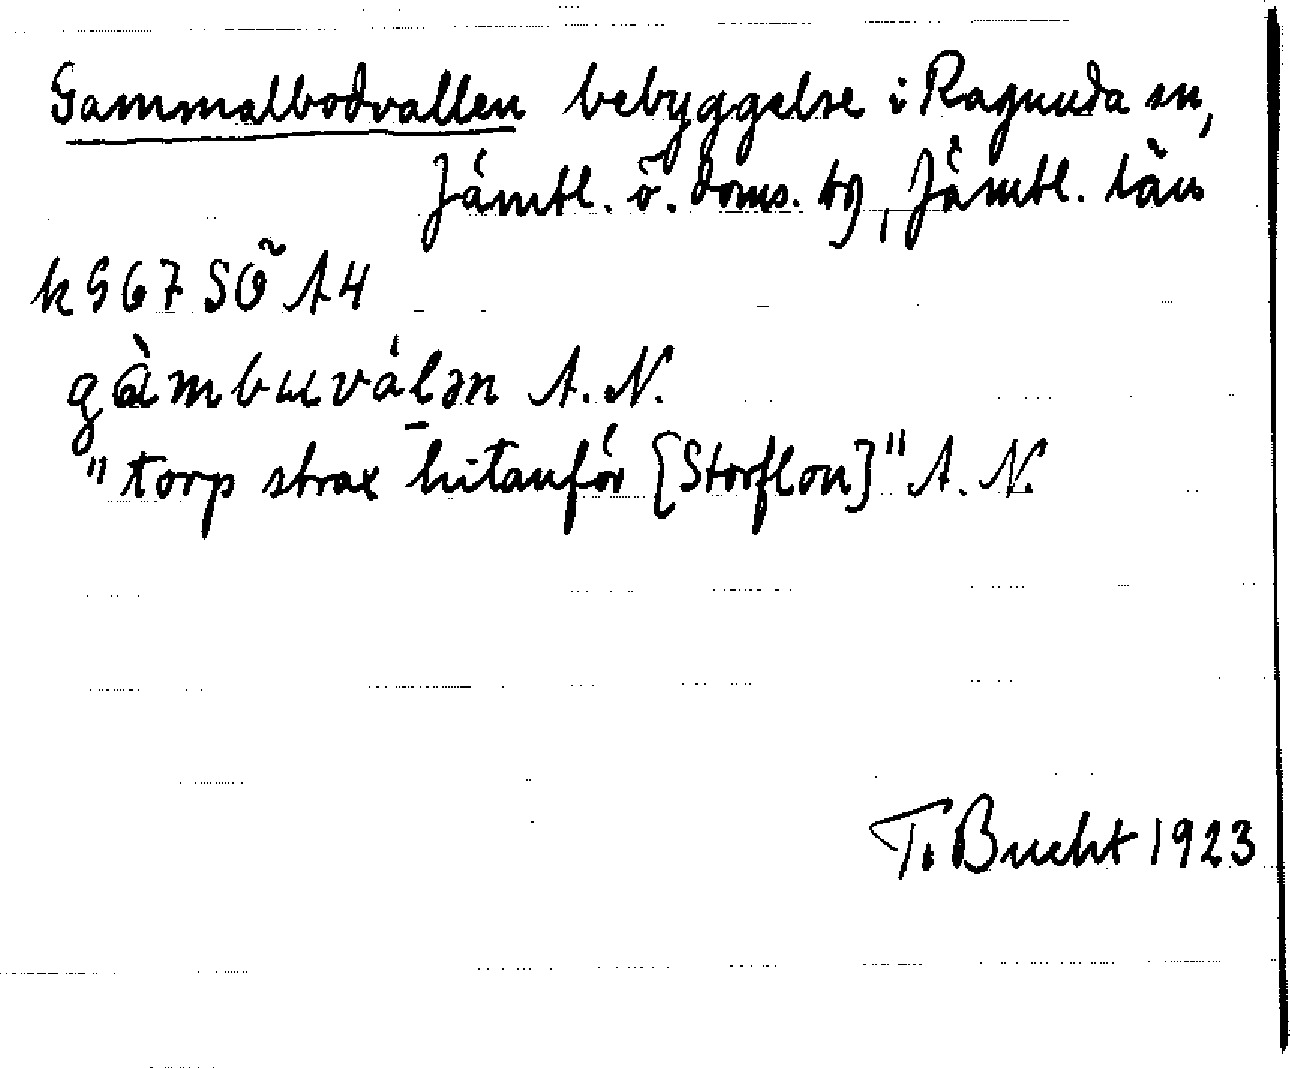 Gammalbodvallen bebyggelse i Ragunda sn,
Jämtl. ö. doms. tg, Jämtl. län
k G67 SÖ A4
gàmbuválən A.N.
"torp strax hitanför [Storflon]" A.N.
T. Bucht 1923